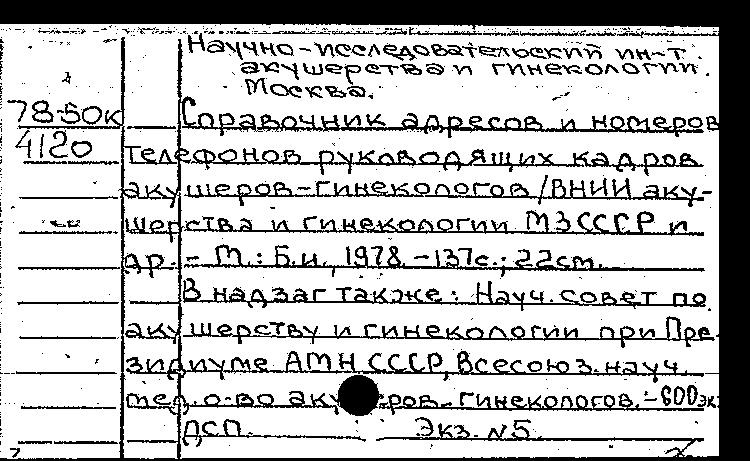 Научно-исследовательский ин-т
акушерства и гинекологии.
Москва.
78-50к Справочник адресов и номеров
4120 телефонов руководящих кадров
акушеров-гинекологов /ВНИИ аку-
шерства и гинекологии МЗ СССР и
др. - М.: Б.и., 1978. -137с.; 22cm.
В надзаг также: Науч. совет по
акушерству и гинекологии при Пре-
зидиуме АМН СССР, Всесоюз. науч.
мед. о-во аку ров-гинекологов. -600 экз
ДСП. Экз. N5.